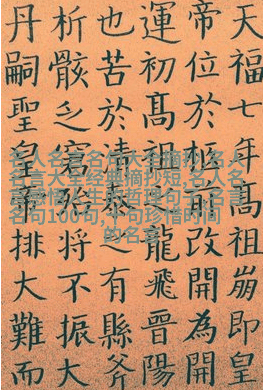 天福七年高祖崩即皇
帝位於柩前改開為開
運初高祖龍飛晉陽
也苦於之有縣斧
析骸之將不振大
丹嗣聖皇排大難而
名人名言名句大全摘抄,名人
名言大全经典摘抄短,名人名
人生的哲理句子,名言
名句100句,十句珍惜时间
的名言